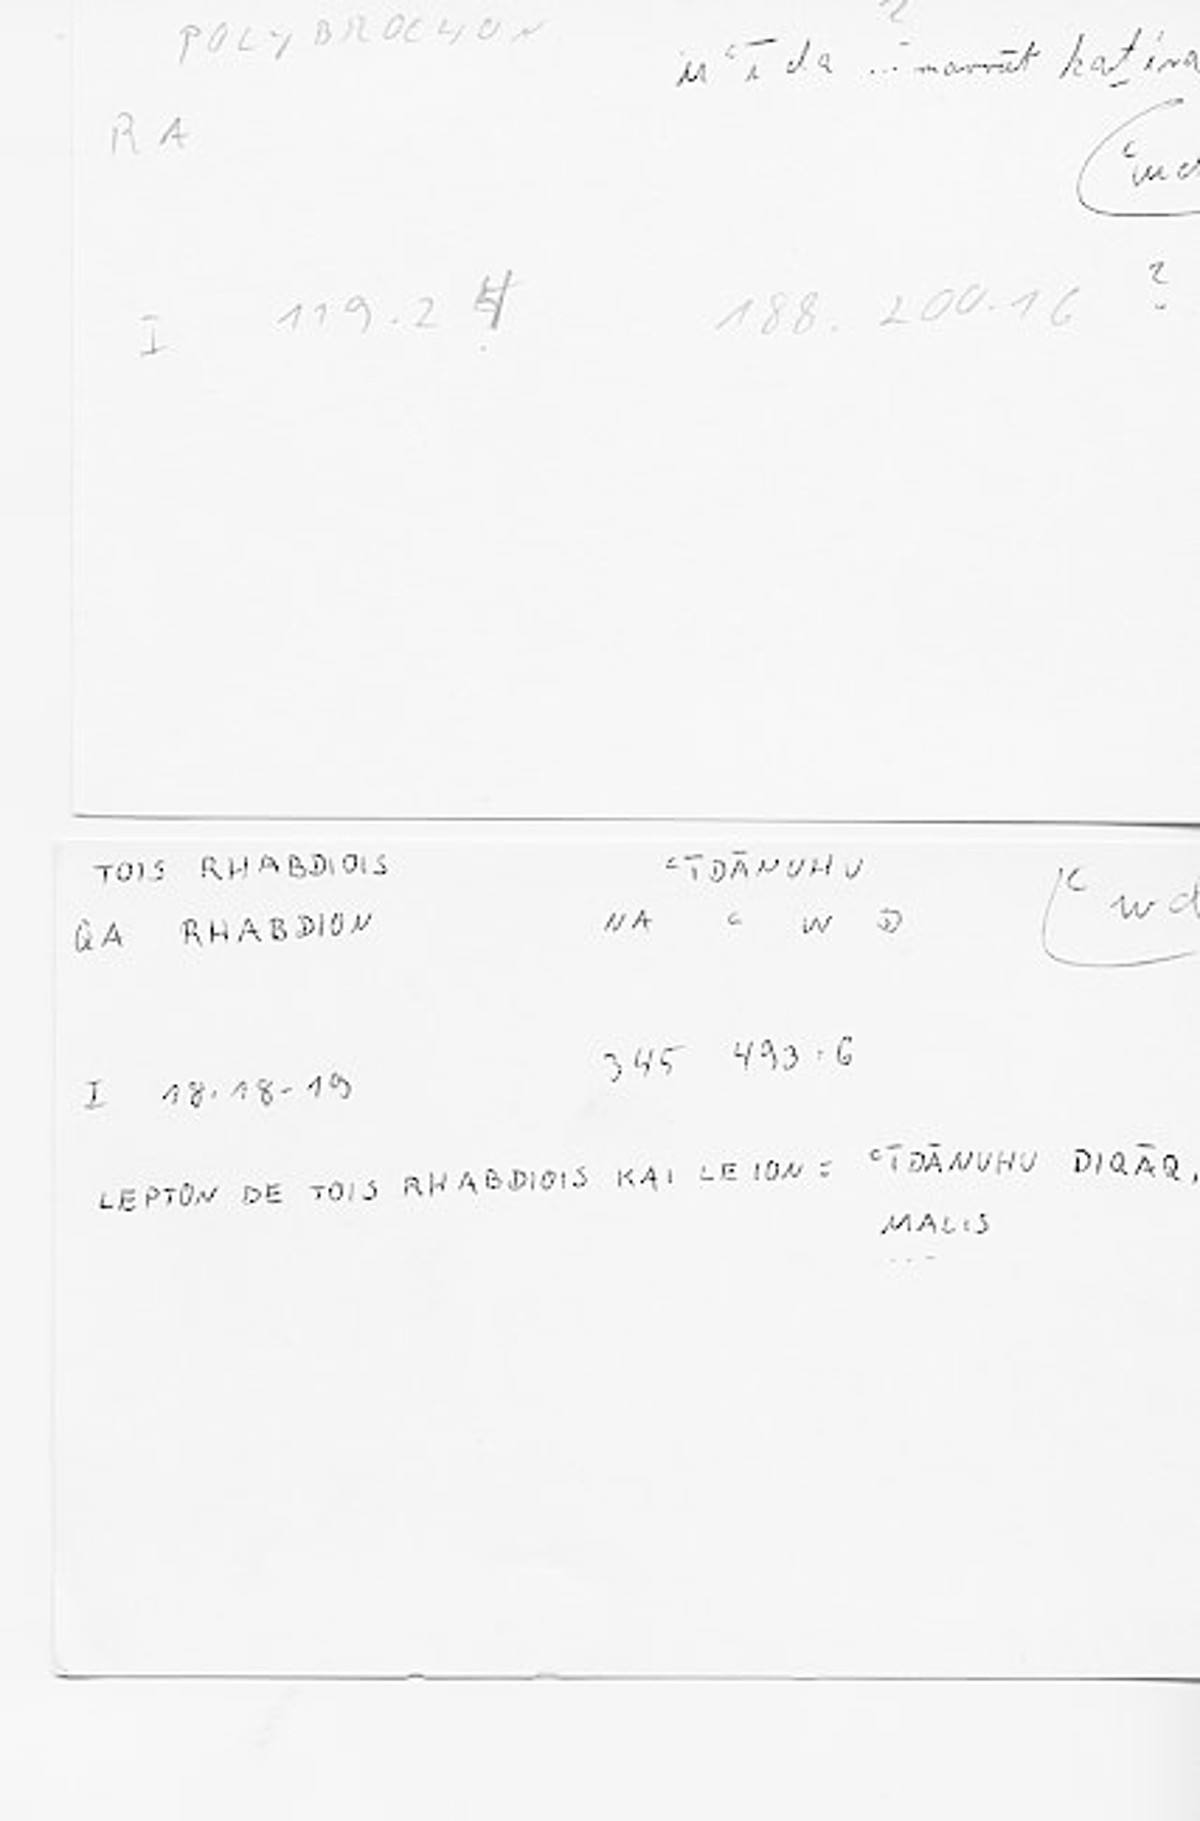 POLYBROCHON
RA
I 119.2
188. 200.16 ?
TOIS RHABDIOIS ʿĪDĀNUHU
QA RHABDION NA ʿ W D
ʿwd
I 18.18-19 345 493:6
LEPTON DE TOIS RHABDIOIS KAI LEION = ʿĪDĀNUHU DIQĀQ,
MALIS